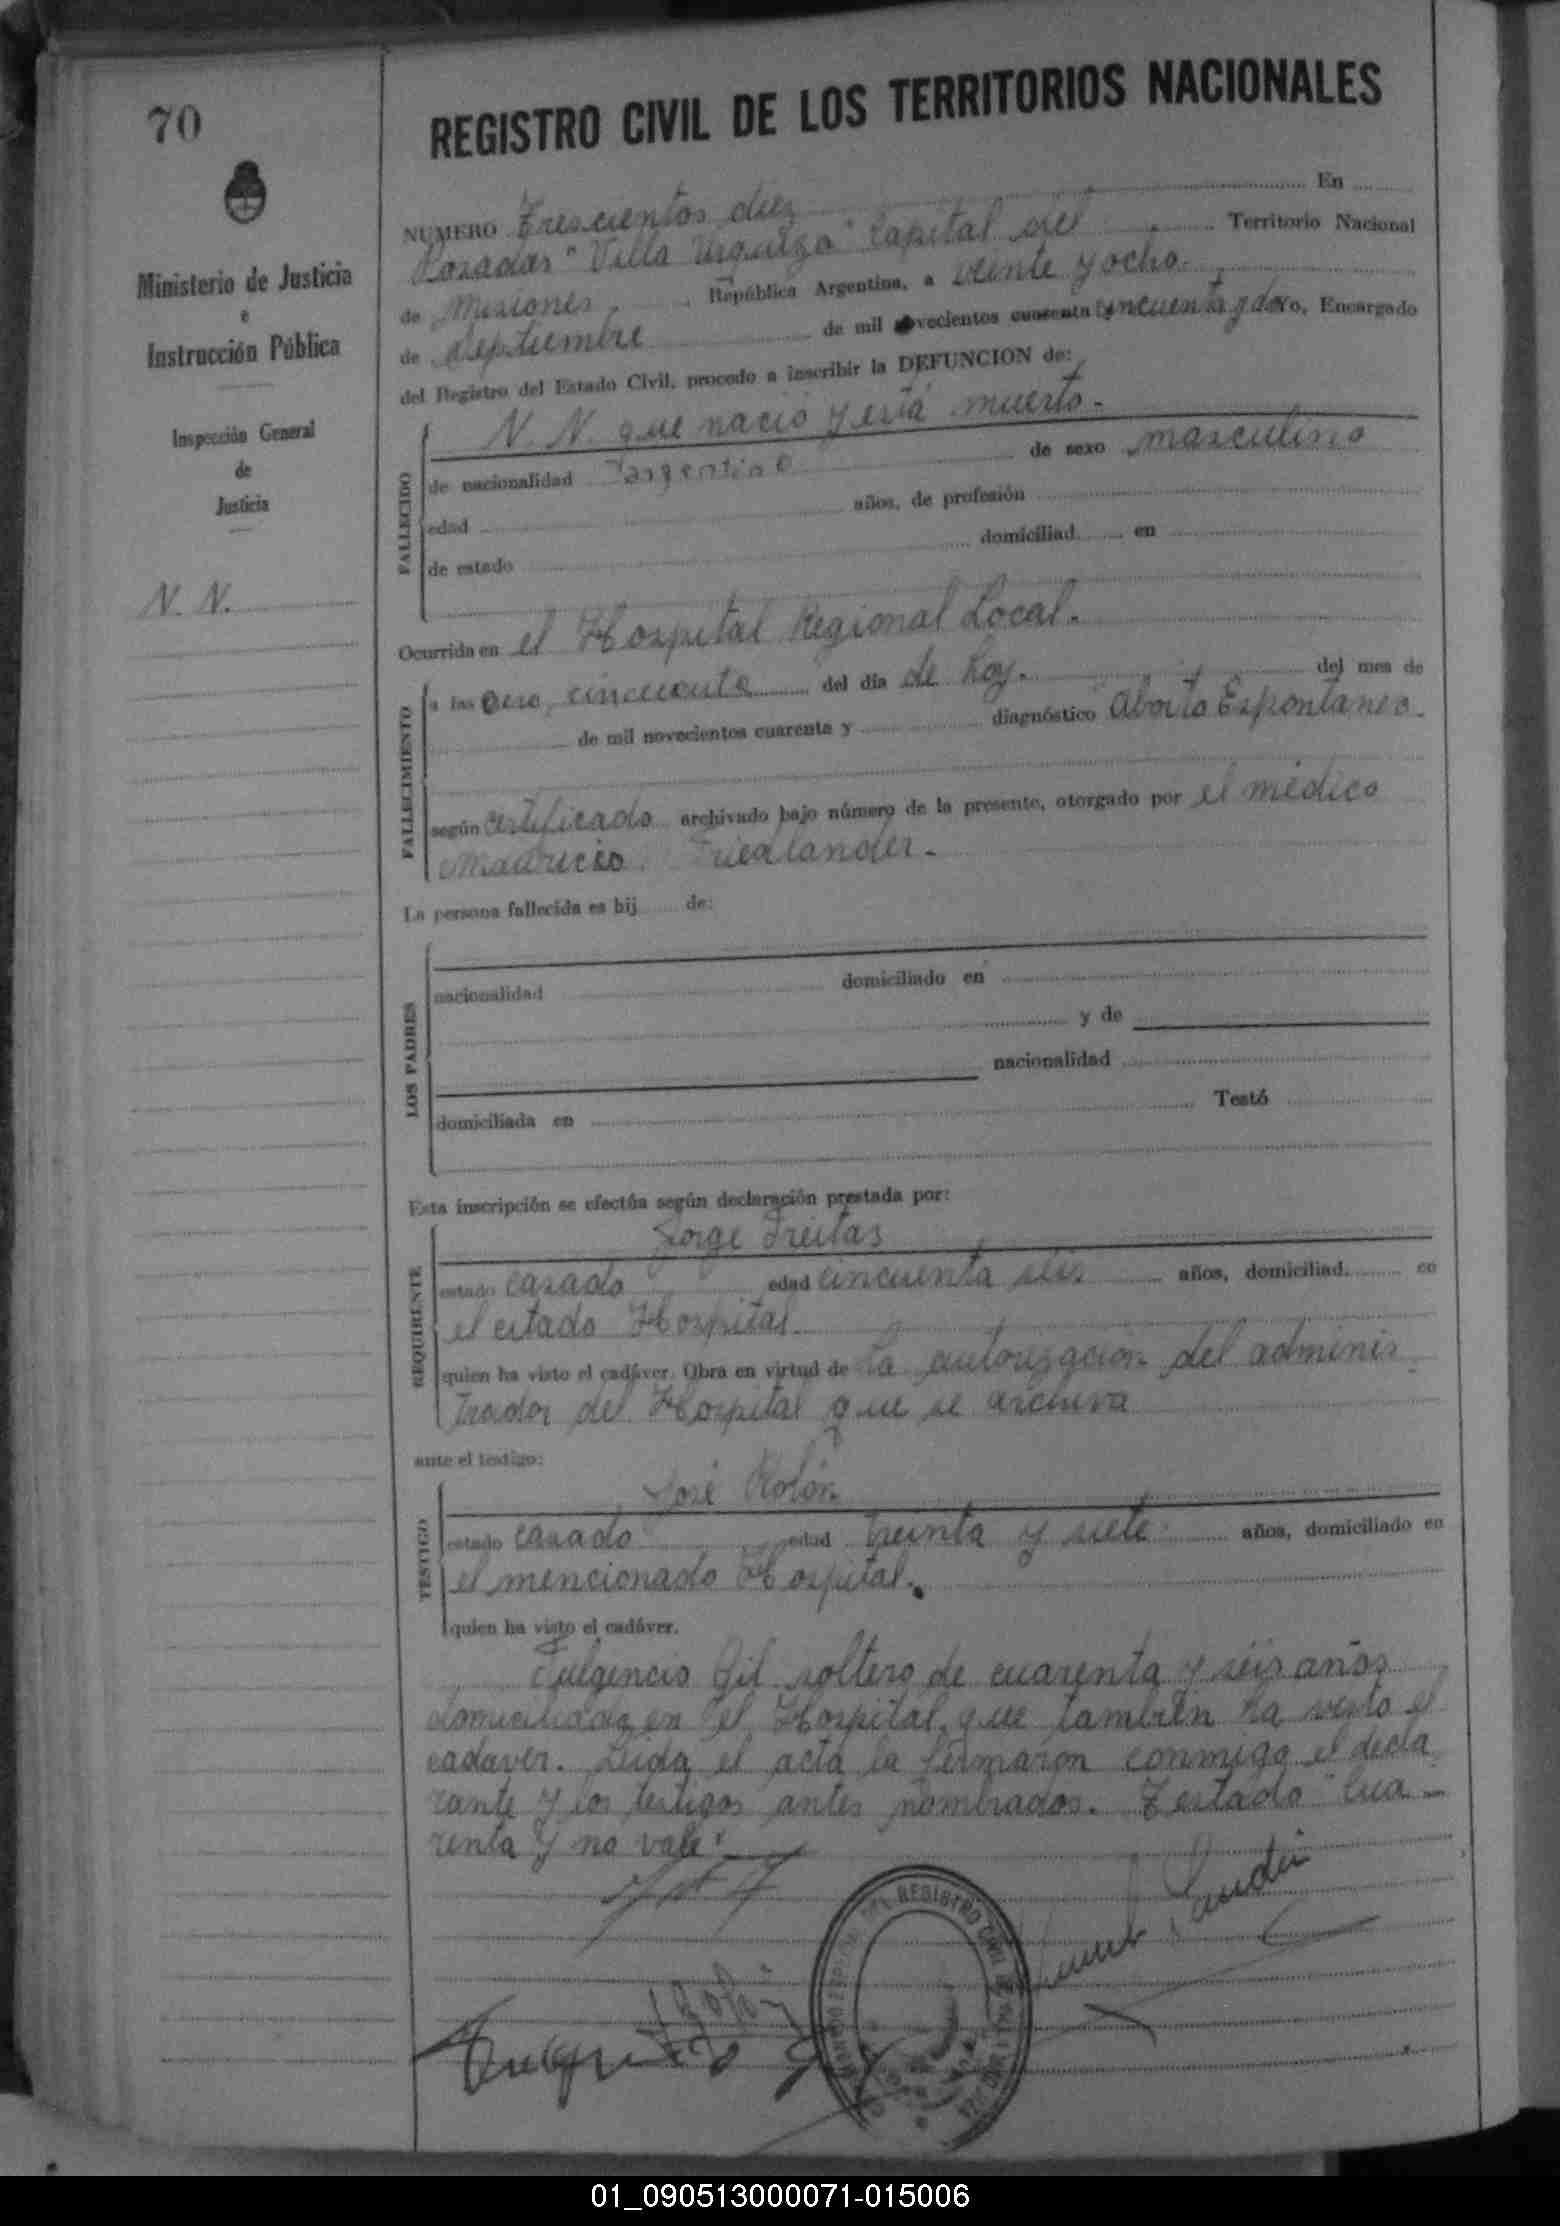 70
Ministerio de Justicia
e
Instrucción Pública
Inspección General
de
Justicia
N. N.
REGISTRO CIVIL DE LOS TERRITORIOS NACIONALES
NUMERO Trescientos diez En
Posadas "Villa Urquiza" Capital del Territorio Nacional
de Misiones, República Argentina, a veinte y ocho.
de Septiembre de mil novecientos cuarenta cincuenta y dos yo, Encargado
del Registro del Estado Civil, procedo a inscribir la DEFUNCION de:
FALLECIDO
N. N. que nació y está muerto.-
de nacionalidad argentino de sexo masculino
edad años, de profesión
de estado domiciliad en
Ocurrida en el Hospital Regional Local.
FALLECIMIENTO
a las cero, cincuenta del día de hoy. del mes de
de mil novecientos cuarenta y diagnóstico Aborto Espontaneo.
según certificado archivado bajo número de la presente, otorgado por el médico
Mauricio Friedlander.-
La persona fallecida es hij de:
LOS PADRES
nacionalidad domiciliado en
y de
nacionalidad
domiciliada en Testó
Esta inscripción se efectúa según declaración prestada por:
REQUIRENTE
Jorge Freitas
estado casado edad cincuenta seis años, domiciliad en
el citado Hospital.
quien ha visto el cadáver. Obra en virtud de la autorización del adminis
trador del Hospital que se archiva
ante el testigo:
TESTIGO
José Rolón
estado casado edad treinta y siete años, domiciliado en
el mencionado Hospital.
quien ha visto el cadáver.
Fulgencio Gil soltero de cuarenta y séis años
domiciliado en el Hospital, que también ha visto el
cadaver. Leida el acta la firmaron conmigo el decla
rante y los testigos antes nombrados. Testado "Cua-
renta y no vale"
REGISTRO CIVIL
01_090513000071-015006